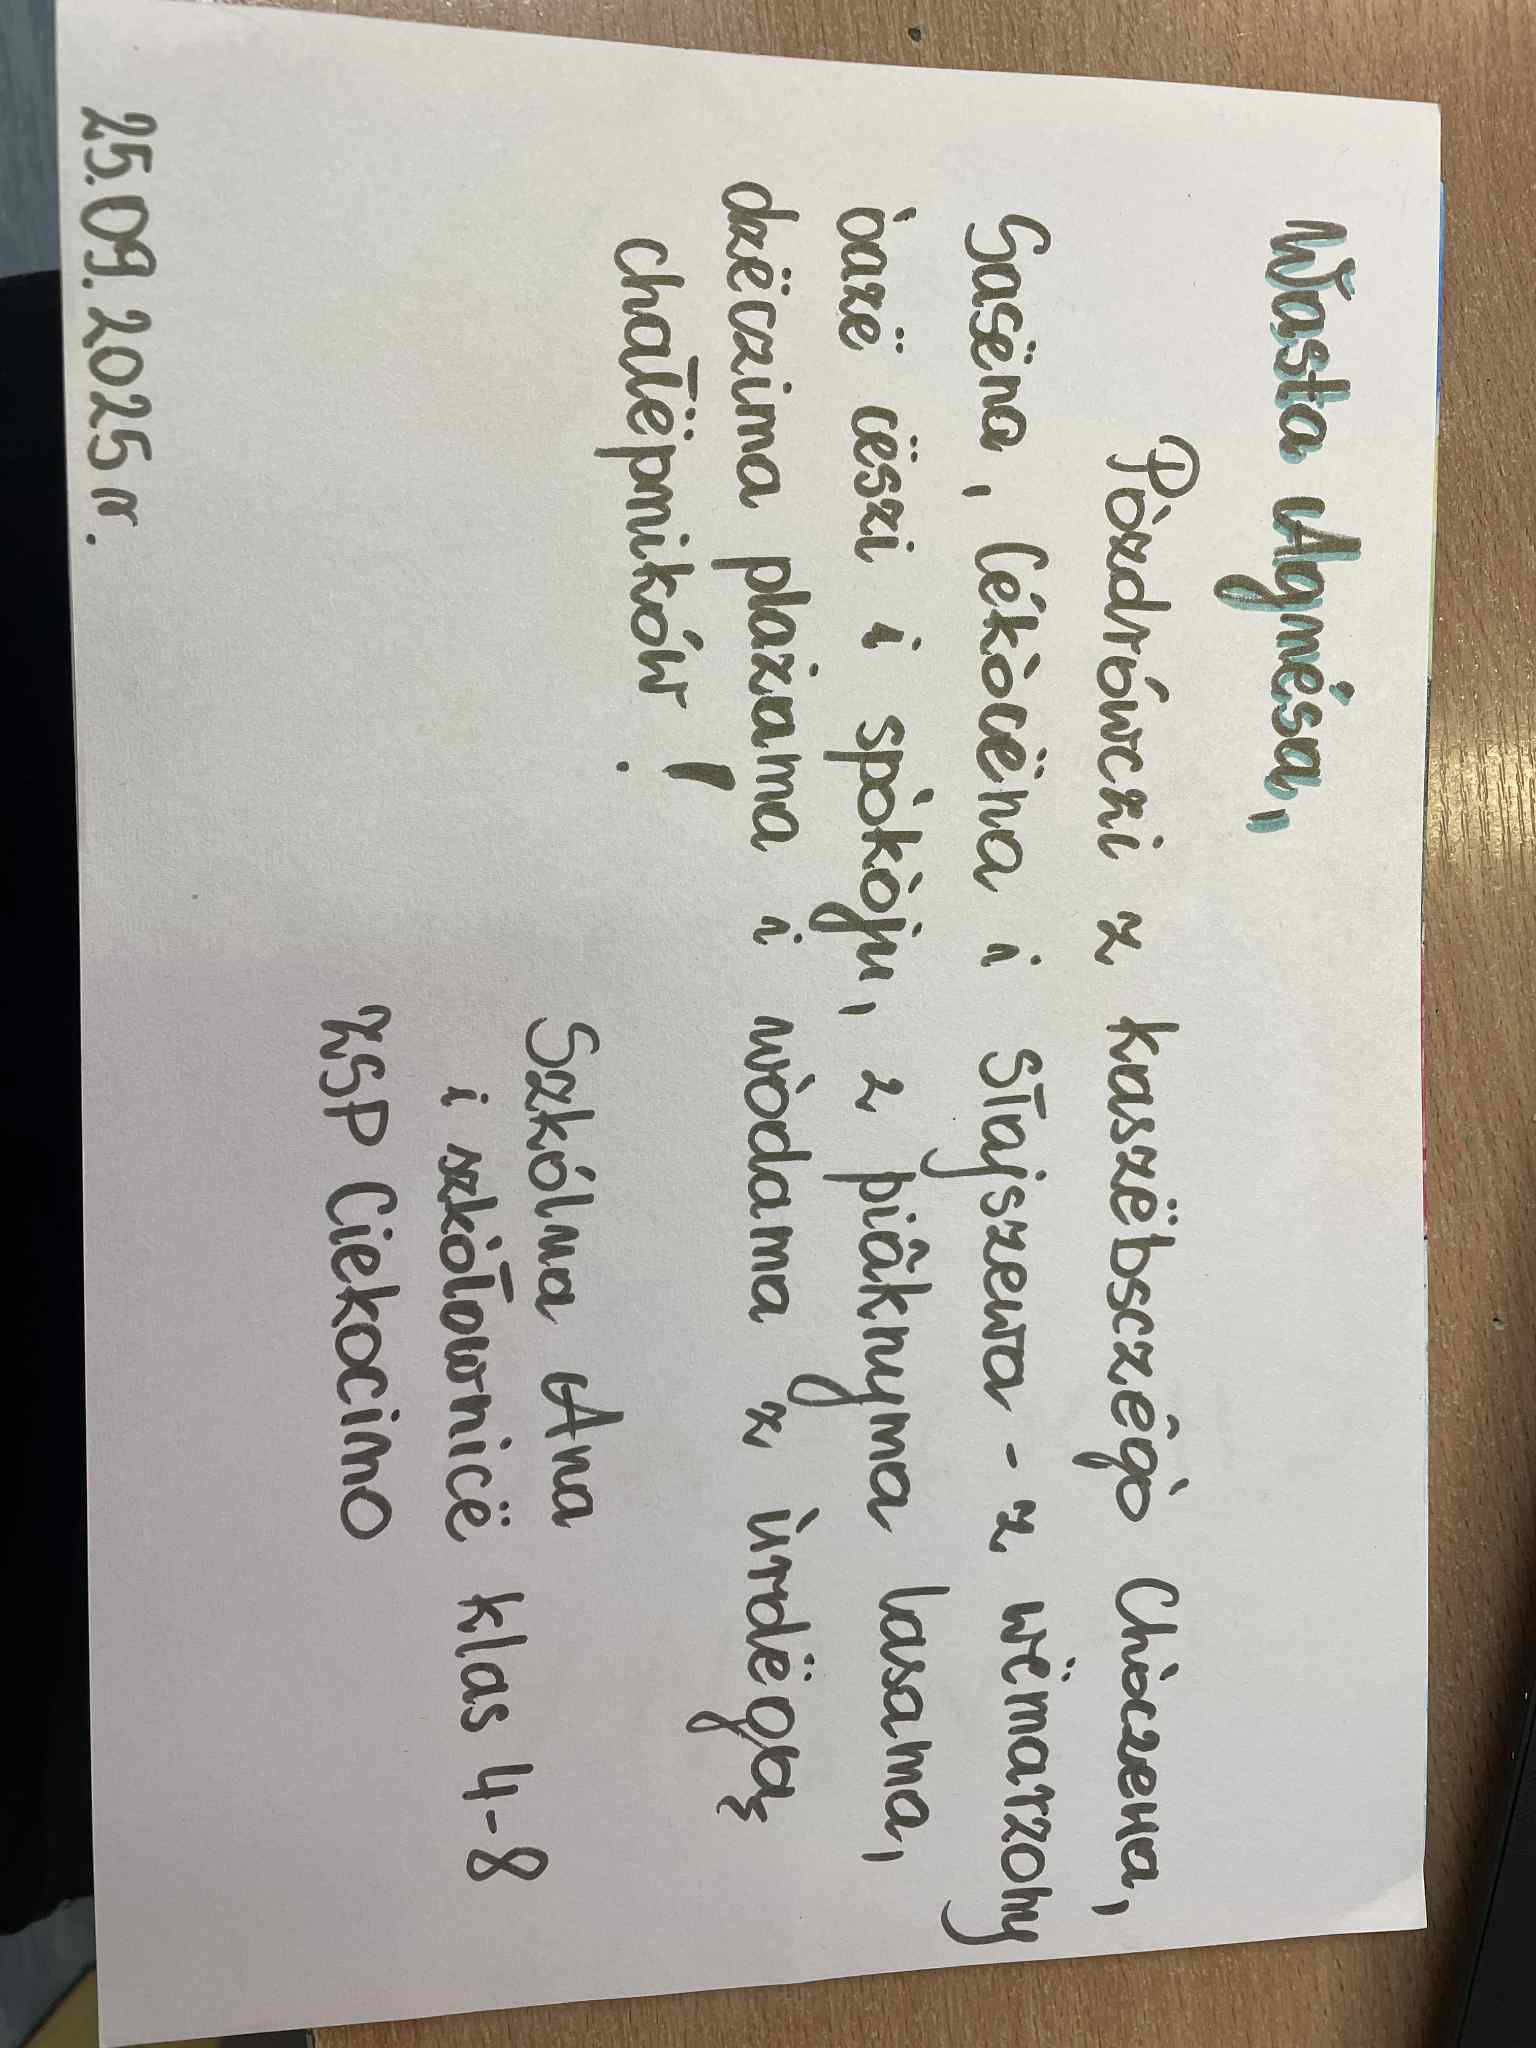 Wasta Agnésa,
Pòzdrówczi z kaszëbsczégò Chòczewa,
Sasëna, Cékòcëna i Słajszewa - z wëmarzony
òazë cëszi i spòkòju, z piãknyma lasama,
dzëczima plażama i wòdama z ùrdëgą
chałëpników!
Szkólna Ana
i szkòłownicë klas 4-8
ZSP Ciekocino
25.09.2025 r.